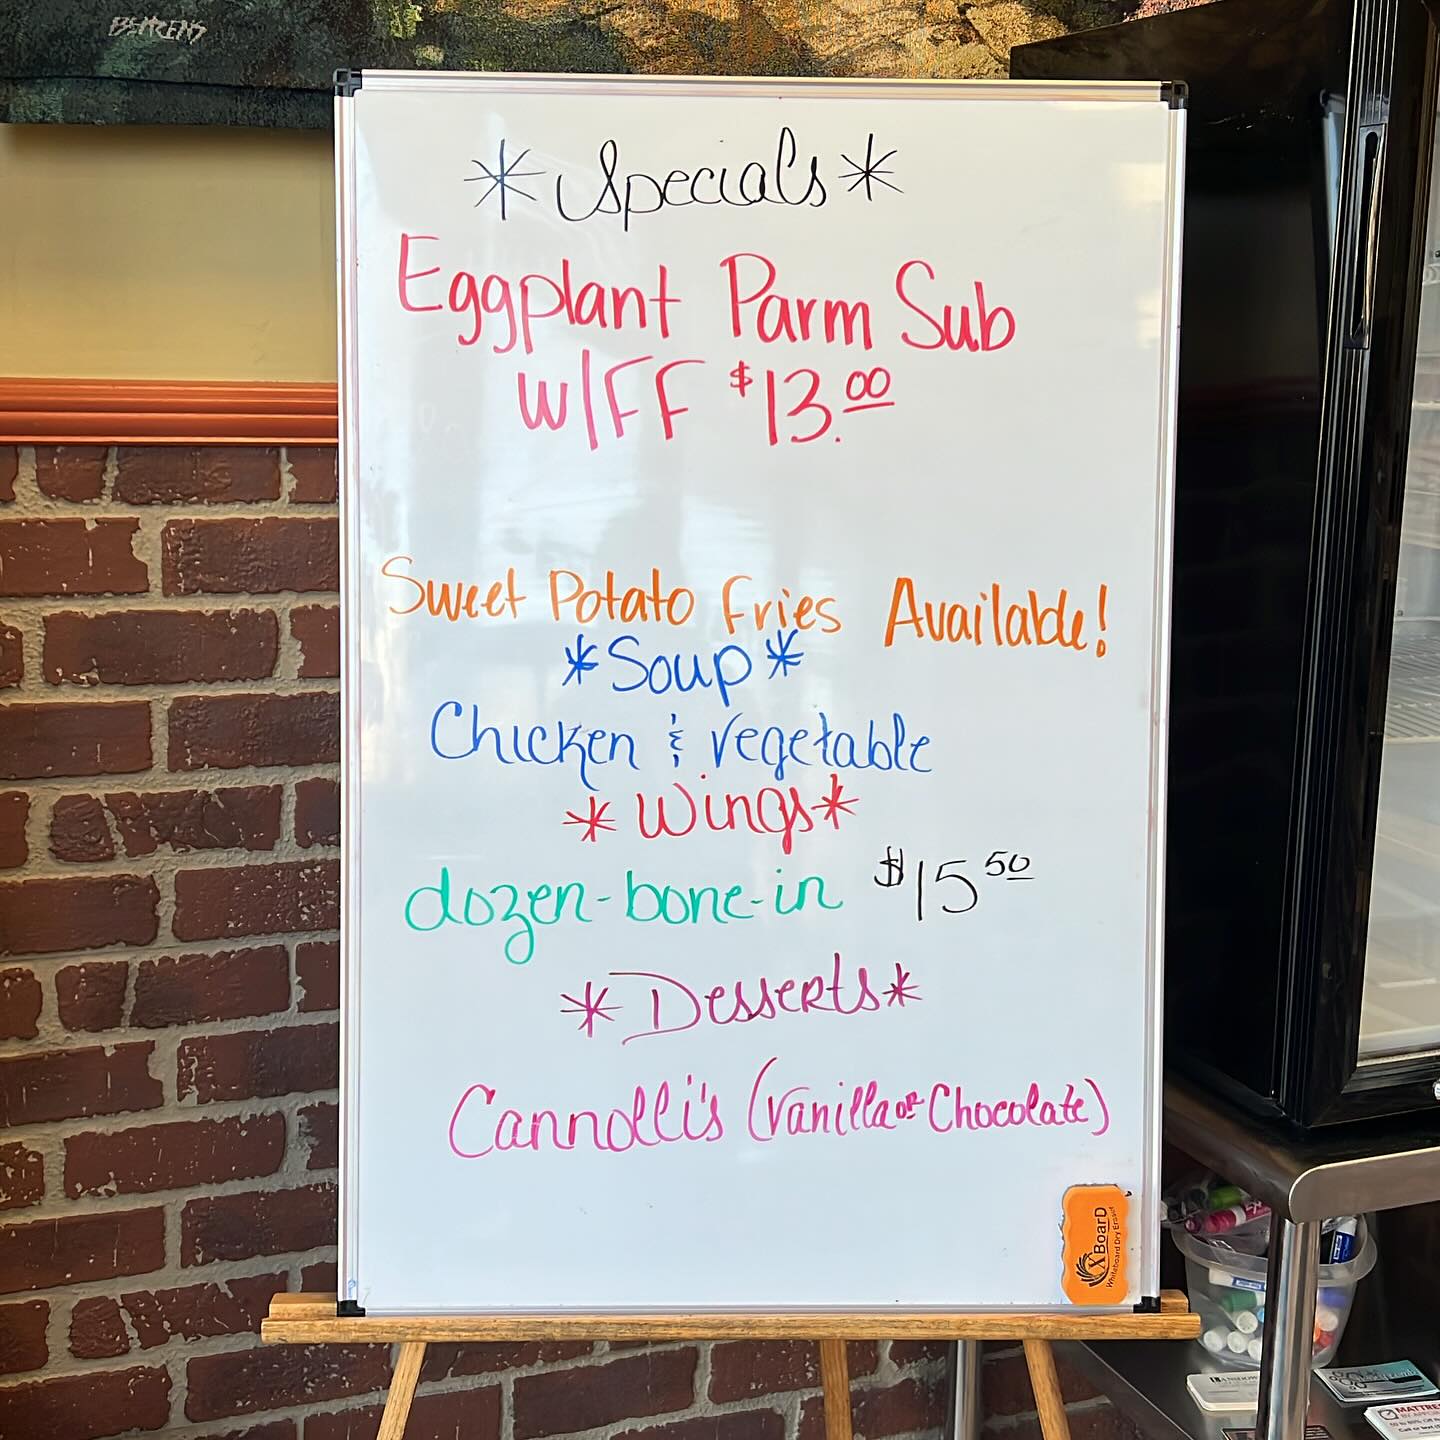 BEHRENS
*Specials*
Eggplant Parm Sub
W/FF $13.00
Sweet Potato Fries Available!
*Soup*
Chicken & vegetable
*Wings*
dozen-bone-in $15 50
*Desserts*
Cannolli's (vanilla or Chocolate)
XBoarD
Whiteboard Dry Eraser
MATTRE